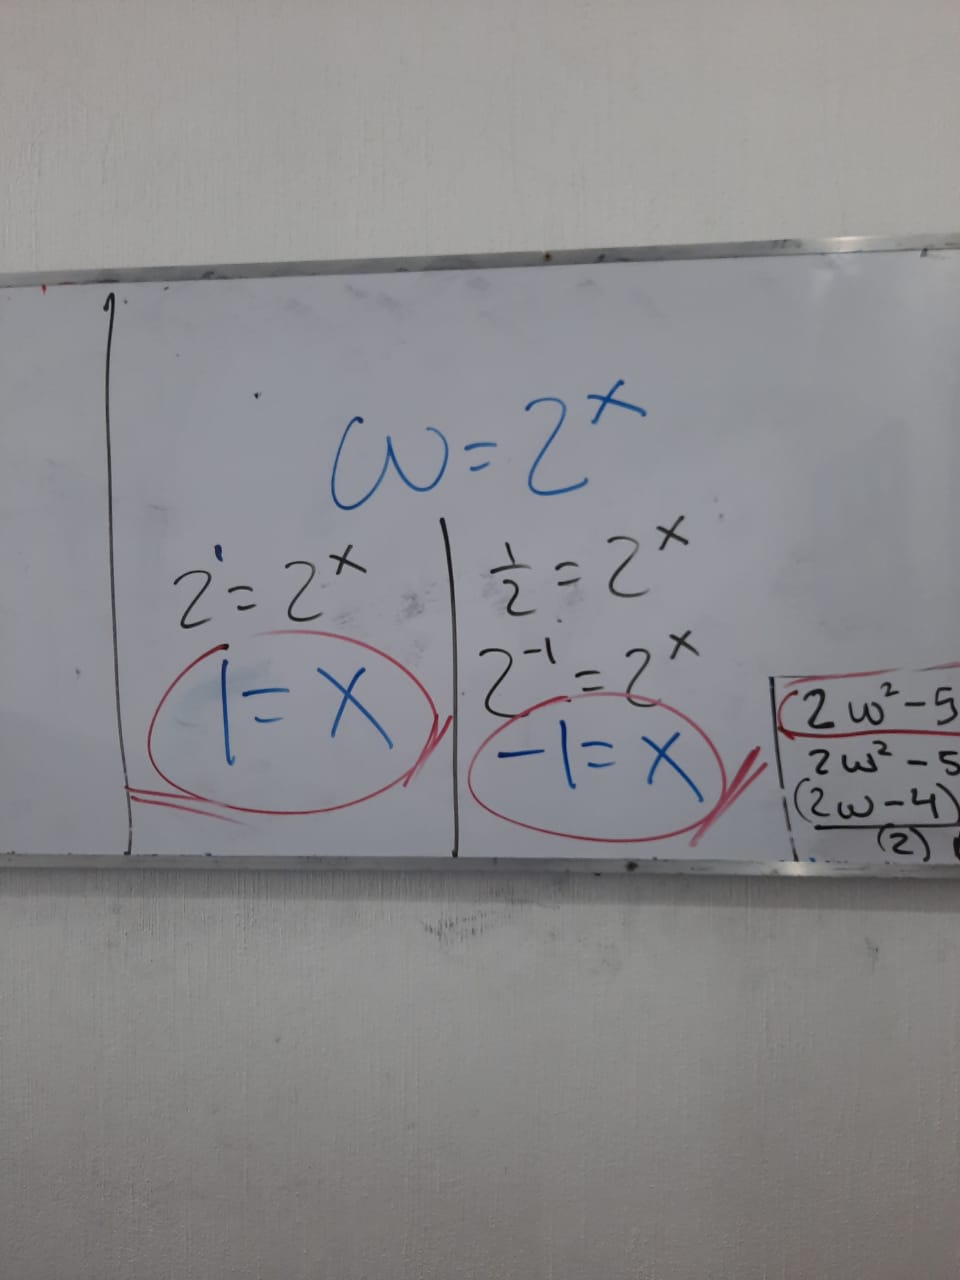 ω = 2^x
2^1 = 2^x
1 = x
1/2 = 2^x
2^-1 = 2^x
-1 = x
2ω² - 5
2ω² - 5
(2ω - 4)
(2)